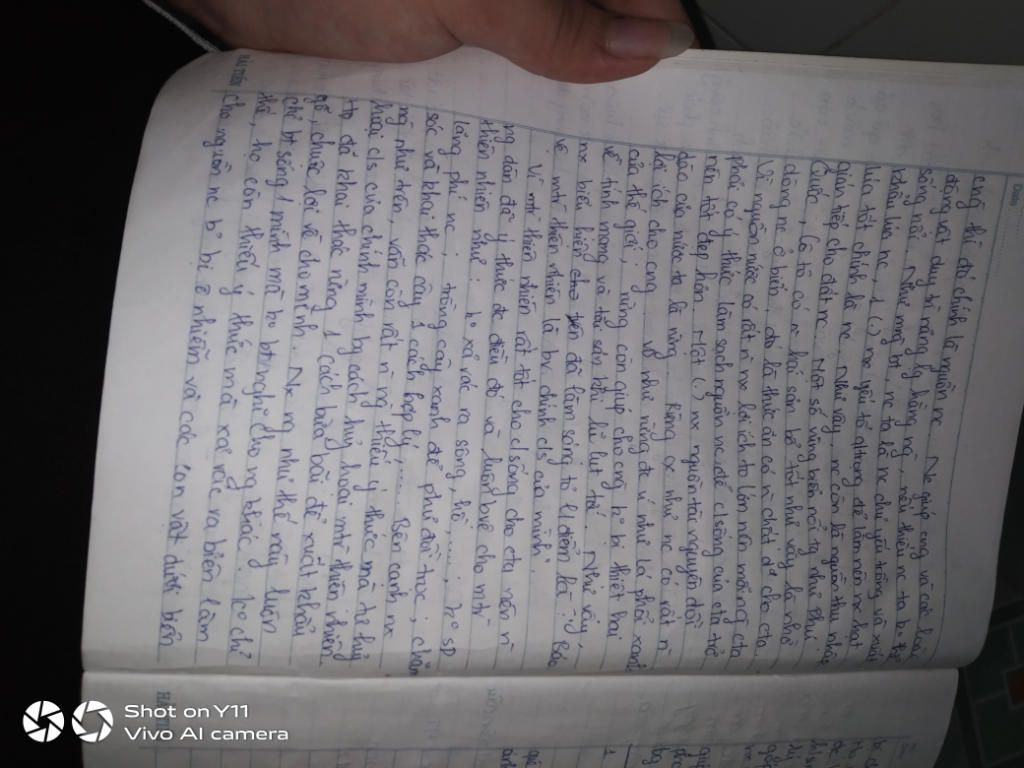 Date
cũng thì đó chính là nguồn nc. Nc giúp cng và các loài
động vật duy trì năng lg hằng ng, nếu thiếu nc ta ko thể
sống nổi. Như mọi bt, nc ta là nc chủ yếu trồng và xuất
khẩu lúa nc, 1 (.) nx yếu tố để làm nên nx hạt
lúa tốt chính là nc. Như vậy, nc còn là nguồn thu nhập
gián tiếp cho đất nc. Một số vùng biển nổi ts như Phú
Quốc, Cô Tô có n hải sản bổ tốt như vậy là nhờ
dòng nc ở biển, đó là thức ăn có n chất d² cho cta
Vì nguồn nước có rất n nx lợi ích to lớn nên mỗi ng cta
phải có ý thức làm sạch nguồn nc để c/sống của cta trở
nên tốt đẹp hơn. Một (.) nx nguồn tài nguyên dồi
dào của nước ta là rừng. Rừng cx như nc có rất n
lợi ích cho cng. Vd như rừng đc ví như lá phổi xanh
của thế giới; rừng còn giúp cho cng ko bị thiệt hại
về tính mạng và tài sản khi lũ lụt tới. Như vậy,
nx biểu hiện trên đã làm sáng tỏ l/điểm là: Bảo
vệ mtr thiên nhiên là bv chính c/s của mình".
Vì mtr thiên nhiên rất tốt cho c/sống cho cta nên n
ng dân đã ý thức đc điều đó và luôn bve cho mtr
thiên nhiên như: ko xả rác ra sông, hồ,.....; ko sd
lãng phí nc; trồng cây xanh để phủ đồi trọc; chăm
sóc và khai thác cây 1 cách hợp lý,..... Bên cạnh nx
ng như trên, vẫn còn rất n ng thiếu ý thức mà tự huỷ
hoại c/s của chính mình bg cách huỷ hoại mtr thiên nhiên
Họ đã khai thác rừng 1 cách bừa bãi để xuất khẩu
gỗ, chuộc lợi về cho mình. Nx ng như thế này luôn
chỉ bt sống 1 mình mà ko bt nghĩ cho ng khác. Ko chỉ
thế, họ còn thiếu ý thức mà xả rác ra biển làm
cho nguồn nc bị ô nhiễm và các con vật dưới biển
HẢI TIẾN
Shot on Y11
Vivo AI camera